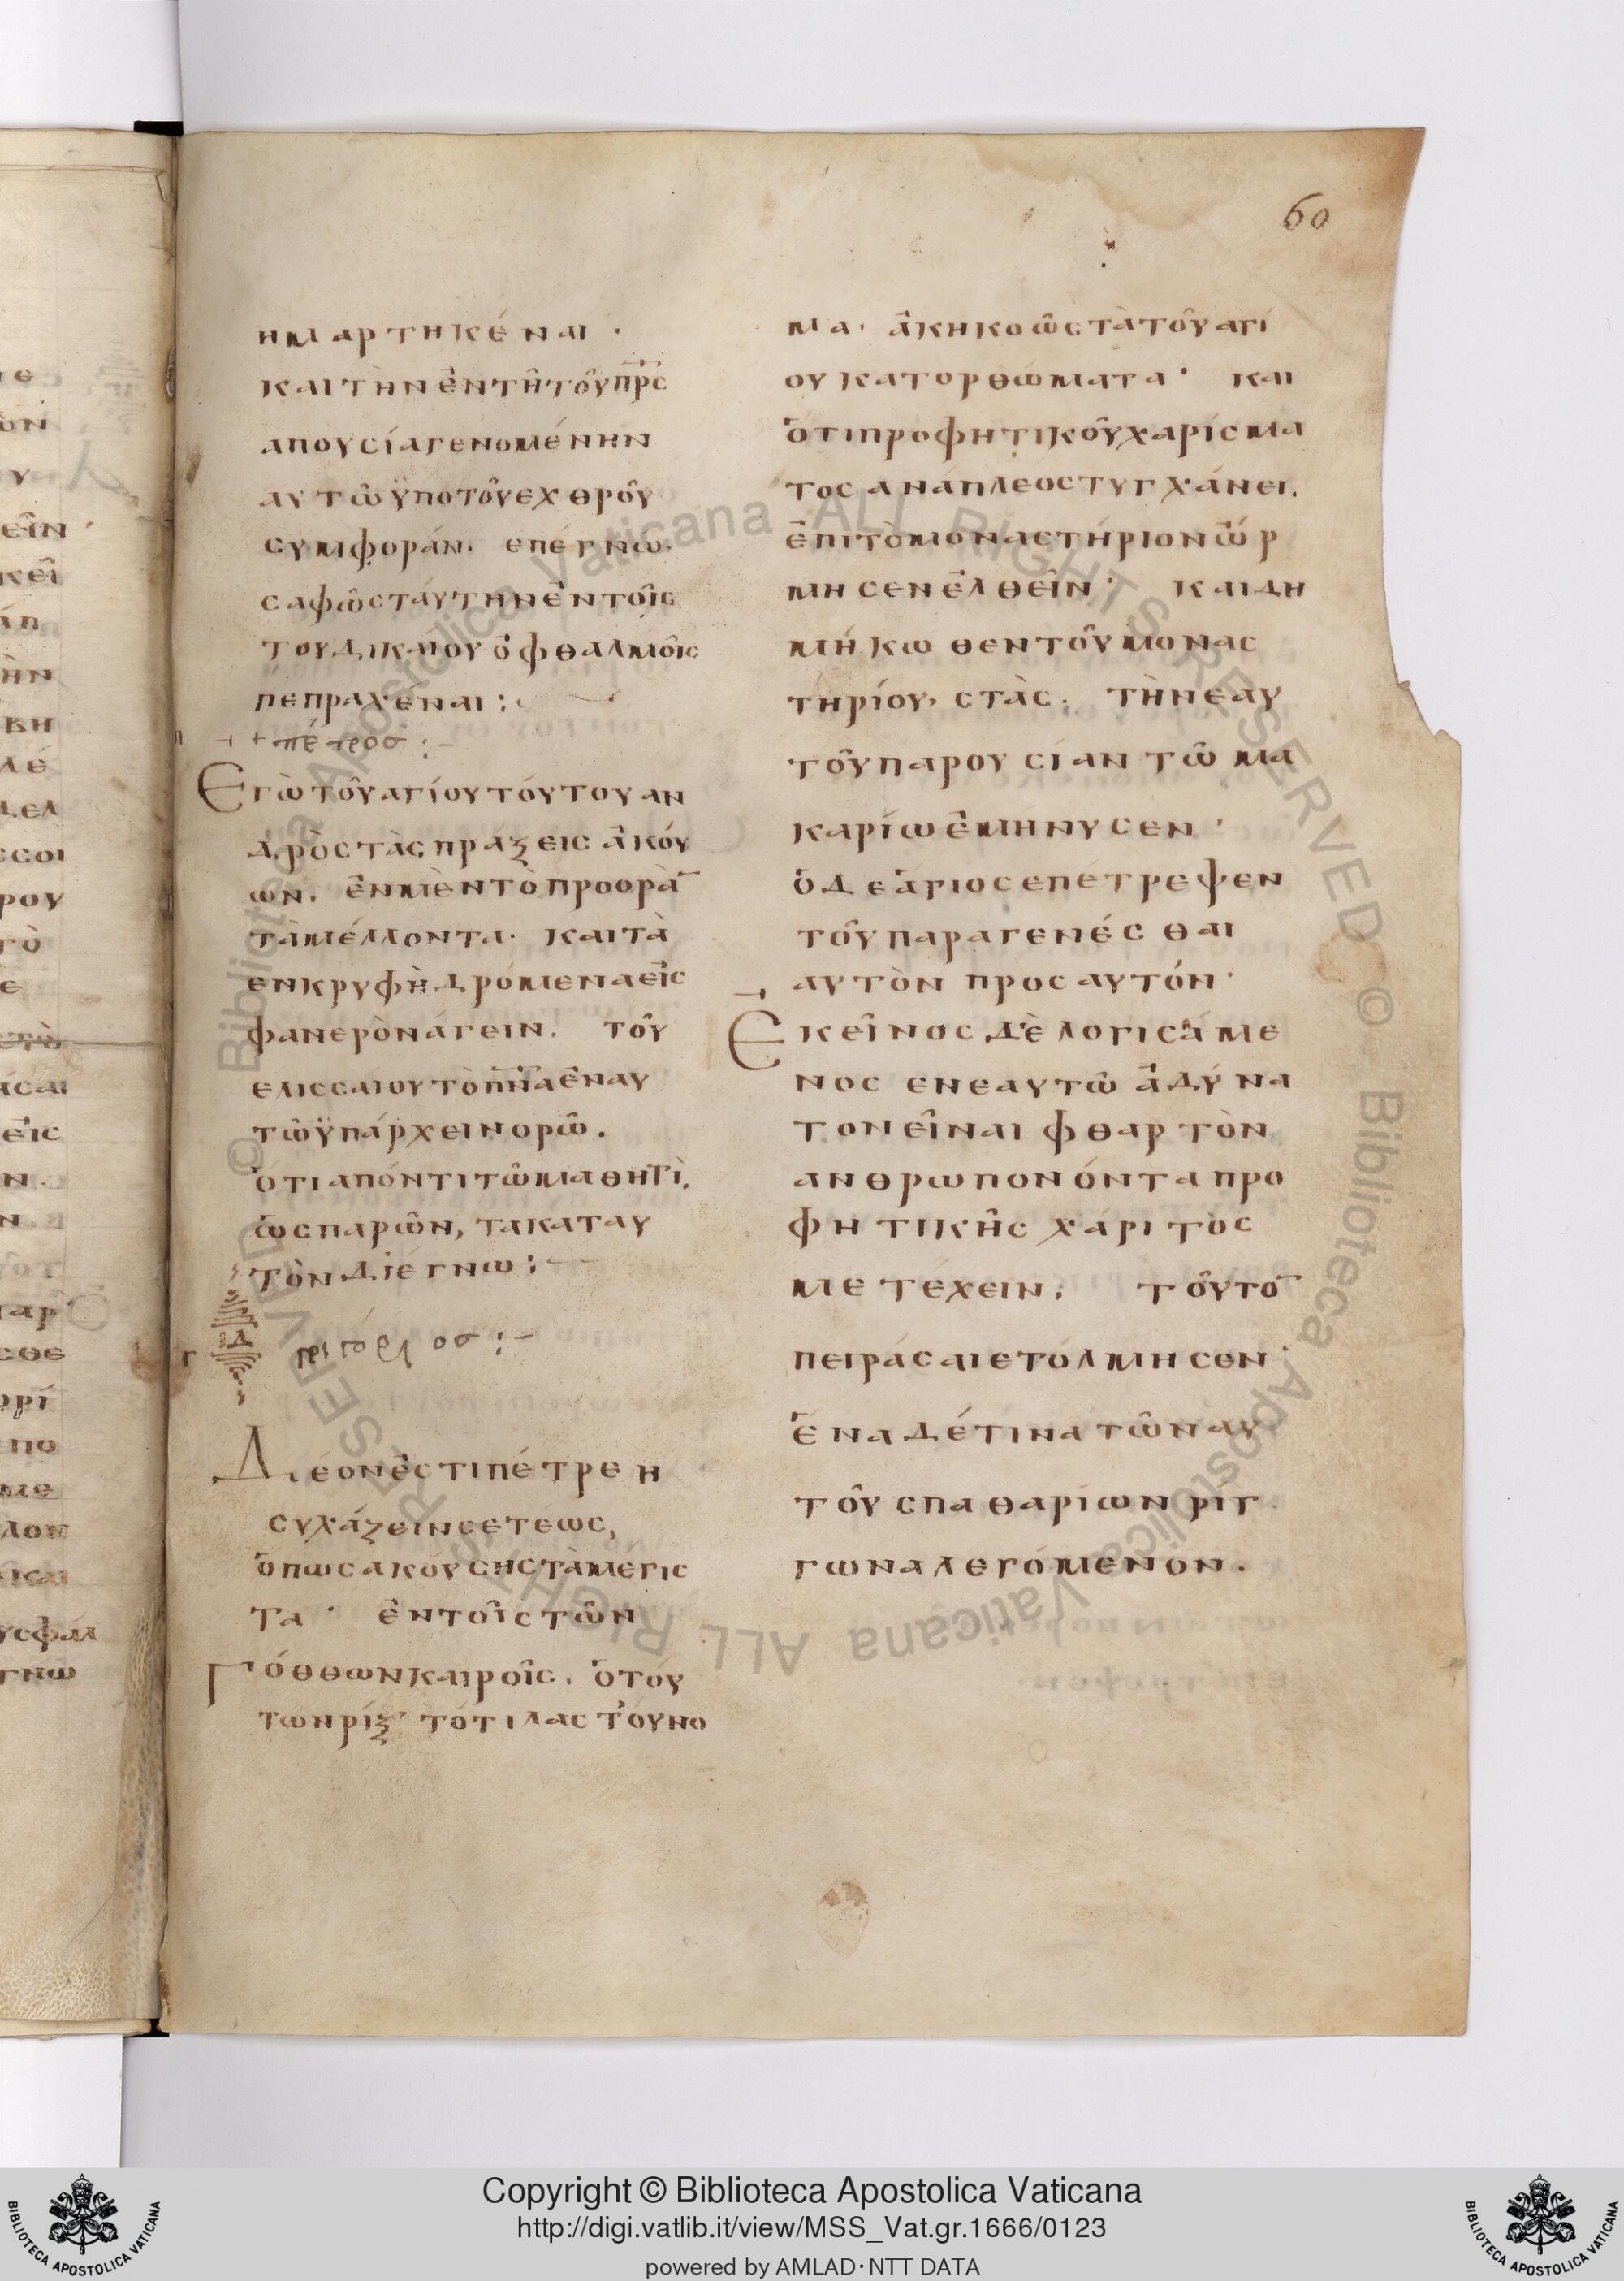 60
ημαρτηκέναι ·
καιτὴνἐντῆτοῦπρ̅ς
απουσίαγενομένην
αυτῶϋποτοῦεχθροῦ
συμφοράν. επέγνω.
σαφῶςτάυτηνἐντοῖς
τουδικαίουὀφθαλμοῖς
πεπραχέναι :
+ πέτροσ :-
Εγὼτοῦαγίουτόυτουαν
δρὸςτὰςπράξειςἀκόυ
ων. ἐνμὲντὸπροορᾶ̅
τὰμέλλοντα· καιτὰ
ενκρυφῆδρόμεναεἰς
φανερὸνάγειν. τοῦ
ελισσαίουτὸπ̅ν̅αἐναυ
τῶϋπάρχεινορῶ.
ὅτιαπόντιτῶμαθητὶ,
ὡςπαρῶν, τακαταυ
τὸνδιέγνω :
γριγόριοσ :-
Δέονἐστιπέτρεη
συχάζεινσετέως,
ὅπωςακόυσηςτὰμέγις
τα · ἐντοῖςτῶν
Γόθθωνκαιροῖς. ὁτόυ
τωνρίξ' τότιλαςτόυνο
μα· ἀκηκοὼςτὰτοῦαγί
ουκατορθώματα· και
ὅτιπροφητικοῦχαρίσμα
τοςανάπλεοςτυγχάνει.
ἐπιτὸμοναστήριονὥρ
μησενἐλθεῖν· καιδη
μήκωθεντοῦμονας
τηρίου, στὰς. τὴνεαυ
τοῦπαρουσίαντῶμα
καρίωἐμήνυσεν ·
ὁδεἅγιοςεπέτρεψεν
τοῦπαραγενέσθαι
αυτὸν προςαυτόν·
Εκεῖνοςδὲλογισάμε
νος ενεαυτῶἀδύνα
τονεῖναιφθαρτὸν
ανθρωπονόνταπρο
φητικῆςχάριτος
μετέχειν, τοῦτο̅
πειράσαιετόλμησεν·
ἕναδέτινατῶναυ
τοῦσπαθαρίωνρίγ
γωναλεγόμενον.
Copyright © Biblioteca Apostolica Vaticana
http://digi.vatlib.it/view/MSS_Vat.gr.1666/0123
powered by AMLAD·NTT DATA